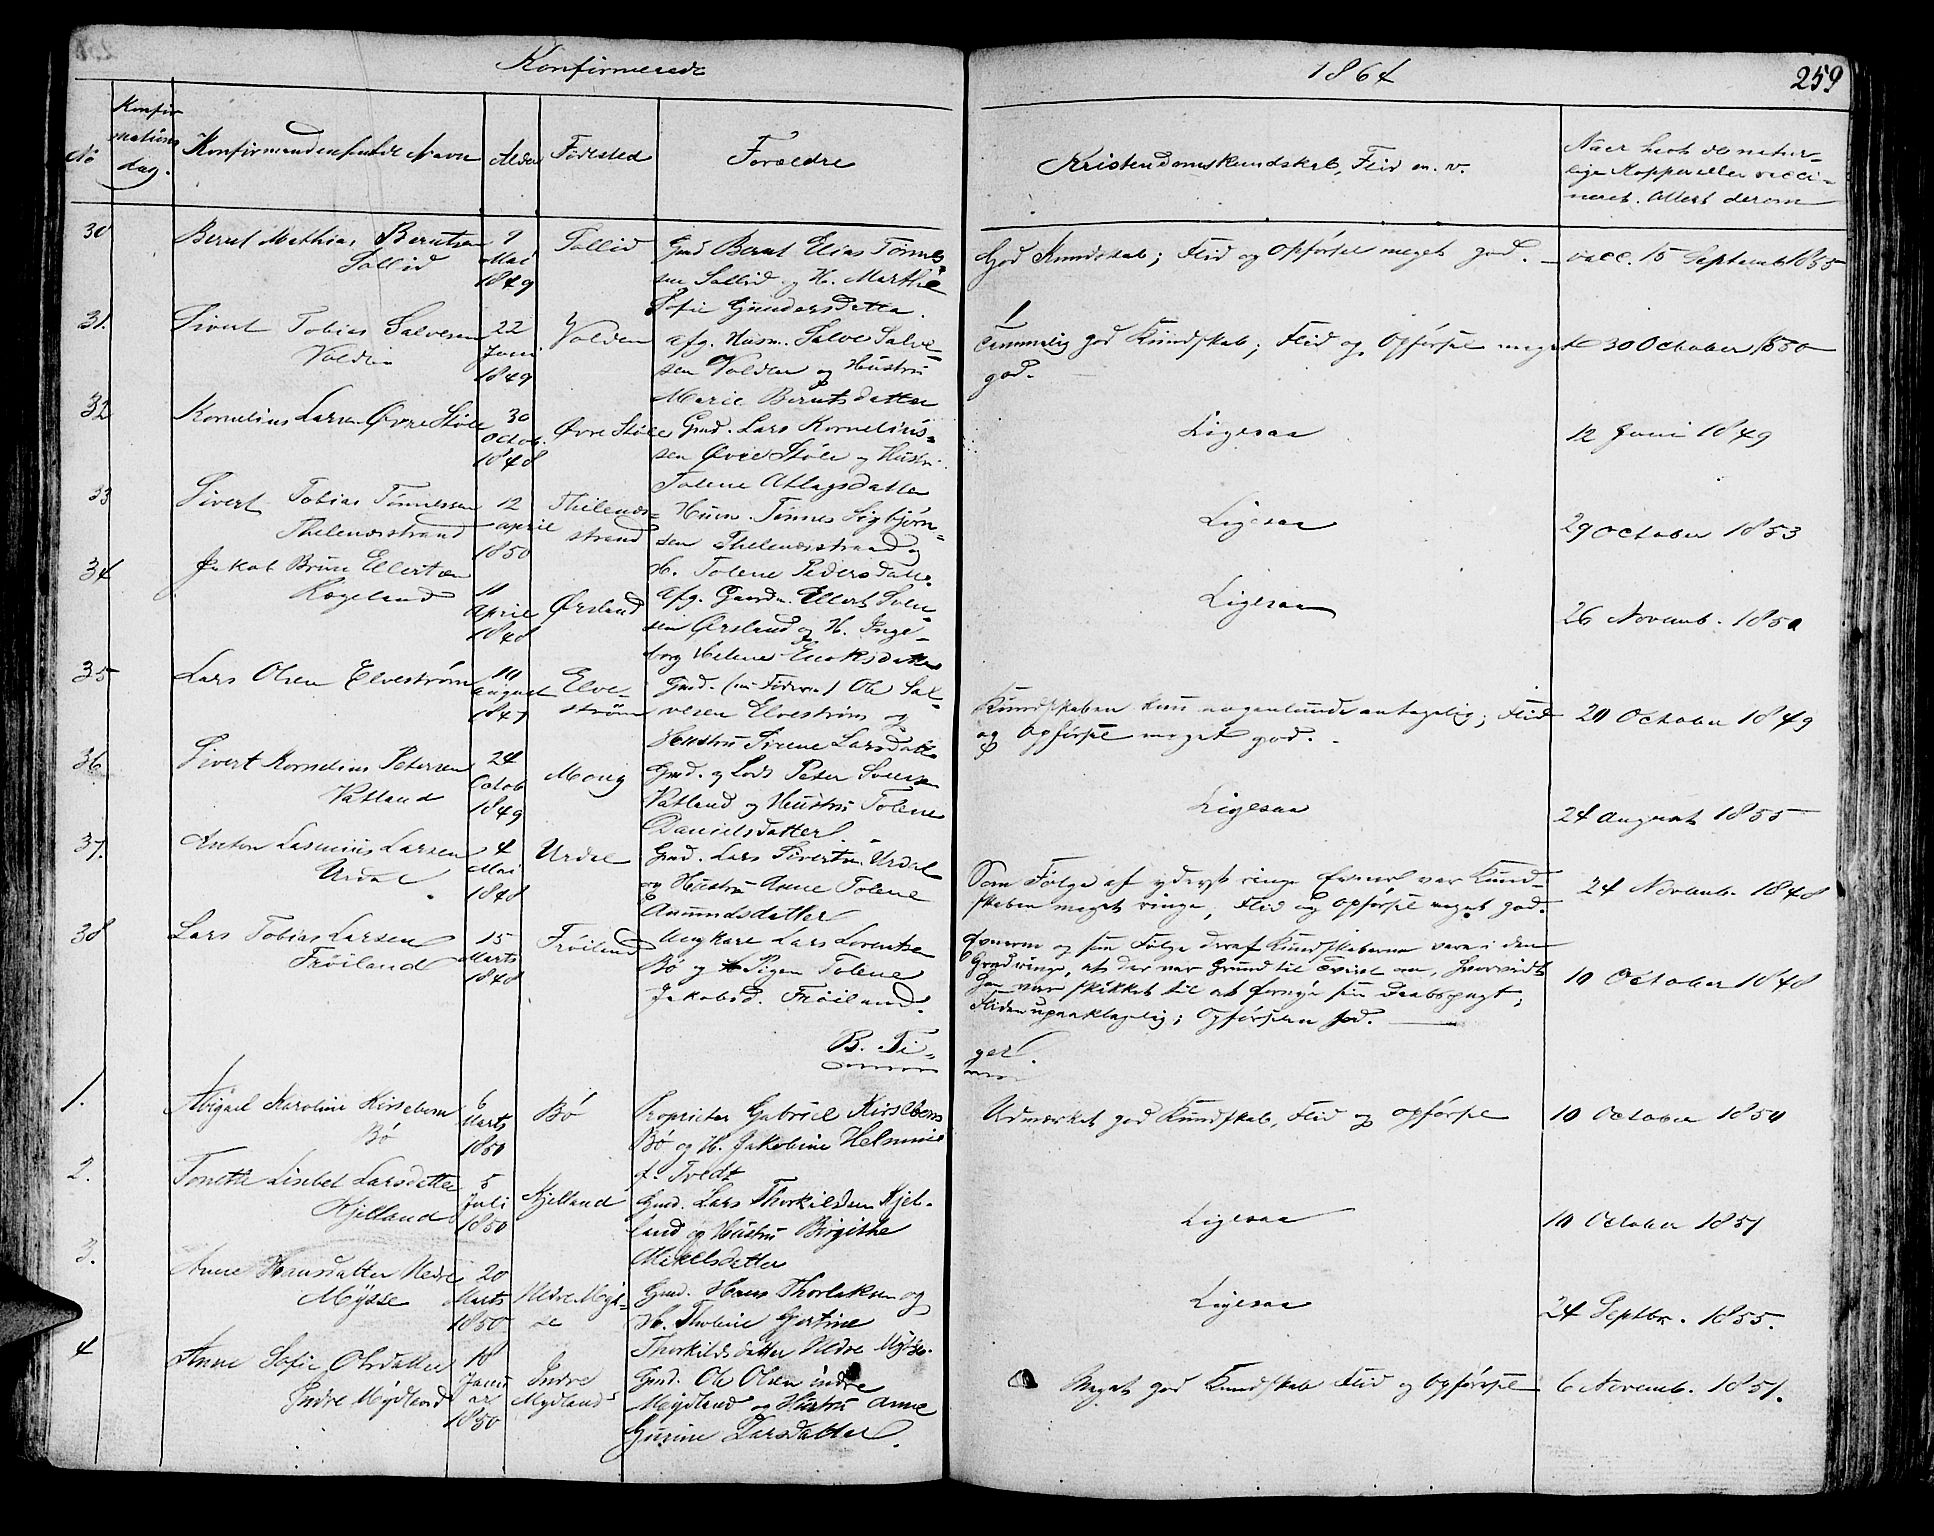 Konfirmerede
1864
259
No
Konfir
mations
dag.
Konfirmandens fulde Navn
Alder
Fødested
Forældre
Kristendomskundskab, Flid m. v.
Naar havt de natur-
lige Kopper eller vacci-
neret. Attest derom
30
Bernt Mathias Berntsen
Sollid
9
Mai
1849
Sollid
Gmd Bernt Elias Tønnes
sen Sollid og H. Marthe
Sofie Gundersdatter.
God Kundskab; Flid og Opførsel meget god.
vacc. 15 Septemb 1855
31.
Sivert Tobias Salvesen
Volden
22
Juni
1849
Volden
afg. Husm. Salve Salve-
sen Volden og Hustru
Marie Berntsdatter
Temmelig god Kundskab; Flid og Opførsel meget
god.
30 October 1850
32
Kornelius Larsen Øvre Støle
30
Octob.
1848
Øvre Støle
Gmd. Lars Kornelius-
sen Øvre Støle og Hustru
Tolene Atlagsdatter
Ligesaa
12 Juni 1849
33
Sivert Tobias Tønnessen
Thelenæsstrand
12
april
1850
Thelenæs-
strand
Husm. Tønnes Sigbjørn-
sen Thelenæsstrand og
H. Tolene Pedersdatter
Ligesaa
29 October 1853
34
Jakob Brun Ellertsen
Rogeland
11
April
1848
Ørsland
afg. Gaardm. Ellert Sven-
sen Ørsland og H. Inge-
borg Helene Enoksdatter
Ligesaa
26 Novemb. 1850
35
Lars Olsen Elvestrøm
10
august
1847
Elve-
strøm
Gmd. Ole Sal-
vesen Elvestrøm og
Hustru Sirene Larsdatter
Kundskaben kun nogenlunde antagelig; Flid
og Opførsel meget god.
20 October 1849
36
Sivert Kornelius Petersen
Vatland
24
Octob
1849
Mong
Gmd. og Lods Peter Svensen
Vatland og Hustru Tolene
Danielsdatter
Ligesaa
24 august 1855
37.
Anton Rasmus Larsen
Urdal
4
Mai
1848
Urdal
Gmd. Lars Sivertsen Urdal
og Hustru Anne Tolene
Amundsdatter
Som Følge af yderst ringe Evner var Kund-
skaben meget ringe, Flid og Opførsel meget god.
24 Novemb. 1848
38
Lars Tobias Larsen
Frøiland
15
Marts
1848
Frøiland
Ungkarl Lars Lorentsen
Bø og Pigen Tolene
Jakobsd. Frøiland.
Evnerne og som Følge deraf Kundskaberne vare i den
Grad ringe, at der var Grund til Tvivl om, hvorvidt
han var skikket til at fornye sin Daabspagt;
Fliden upaaklagelig; Opførselen god.
10 October 1848
B. Pi-
ger.
1.
Abigael Karoline Kirsebom
Bø
6
Marts
1850
Bø
Proprietær Gabriel Kirsebom
Bø og H. Jakobine Helmine
f. Tvedt
Udmærket god Kundskab, Flid og Opførsel
10 October 1850
2.
Tonette Lisbet Larsdatter
Kjelland
5
Juli
1850
Kjelland
Gmd. Lars Thorkildsen Kjel-
land og Hustru Birgithe
Mikelsdatter
Ligesaa
10 October 1851
3.
Anne Hansdatter Nedre
Mysse
20
Marts
1850
Nedre Mys-
se
Gmd. Hans Thorlaksen og
H. Tholine Gjertine
Thorkildsdatter Nedre Mysse.
Ligesaa
24 Septbr. 1855.
4
Anne Sofie Olsdatter
Indre Mydland
10
Janu
ar
1850
Indre
Mydland
Gmd. Ole Olsen indre
Mydland og Hustru Anne
Gurine Larsdatter.
Meget god Kundskab Flid og Opførsel
6 Novemb. 1851.